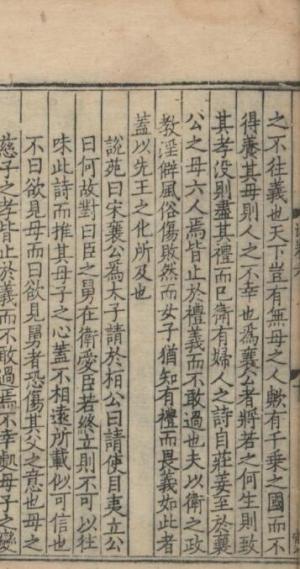 之不往義也天下豈有無母之人歟有千乘之國而不
得養其母則人之不幸也為襄公者將若之何生則致
其孝没則盡其禮而已衛有婦人之詩自莊姜至於襄
公之母六人焉皆止於禮義而不敢過也夫以衛之政
教淫僻風俗傷敗然而女子猶知有禮而畏義如此者
蓋以先王之化所及也
說苑曰宋襄公為太子請於桓公曰請使目夷立公
曰何故對曰臣之舅在衛愛臣若終立則不可以往
味此詩而推其母子之心蓋不相遠所載似可信也
不曰欲見母而曰欲見舅者恐傷其父之意也母之
慈子之孝皆止於義而不敢過焉不幸處母子之變